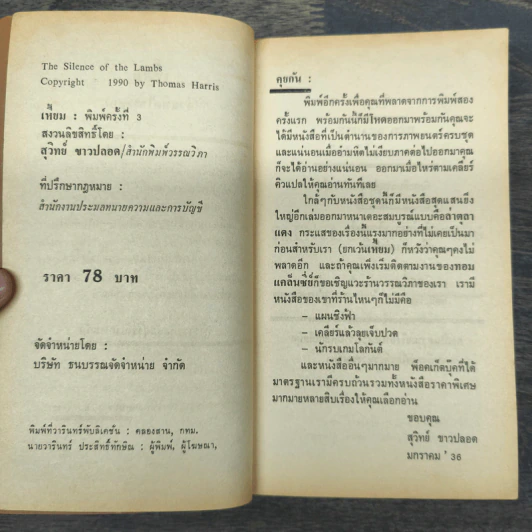 The Silence of the Lambs
Copyright 1990 by Thomas Harris
เหี้ยม : พิมพ์ครั้งที่ 3
สงวนลิขสิทธิ์โดย :
สุวิทย์ ขาวปลอด/สำนักพิมพ์วรรณวิภา
ที่ปรึกษากฎหมาย :
สำนักงานประมวลทนายความและการบัญชี
ราคา 78 บาท
จัดจำหน่ายโดย :
บริษัท ธนบรรณจัดจำหน่าย จำกัด
พิมพ์ที่วารินทร์พับลิเคชัน : คลองสาน, กทม.
นายวารินทร์ ประสิทธิ์ทักษิณ : ผู้พิมพ์, ผู้โฆษณา,
คุยกัน :
พิมพ์อีกครั้งเพื่อคุณที่พลาดจากการพิมพ์สอง
ครั้งแรก พร้อมกันนี้ก็มีโหดออกมาพร้อมกันคุณจะ
ได้มีหนังสือที่เป็นตำนานของการภาพยนตร์ครบชุด
และแน่นอนเมื่ออำมหิตไม่เงียบภาคต่อไปออกมาคุณ
ก็จะได้อ่านอย่างแน่นอน ออกมาเมื่อไหร่ตามเคลียร์
คิวแปลให้คุณอ่านทันทีเลย
ใกล้ๆกับหนังสือชุดนี้ก็มีหนังสือสุดแสนยิ่ง
ใหญ่อีกเล่มออกมาหนาเตอะสมบูรณ์แบบคือล่าตุลา
แดง กระแสของเรื่องนี้แรงมากอย่างที่ไม่เคยเป็นมา
ก่อนสำหรับเรา (ยกเว้นเหี้ยม) ก็หวังว่าคุณๆคงไม่
พลาดอีก และถ้าคุณเพิ่งเริ่มติดตามงานของทอม
แคล็นซี่ย์ก็ขอเชิญแวะร้านวรรณวิภาของเรา เรามี
หนังสือของเขาที่ร้านไหนๆก็ไม่มีคือ
– แผนชิงฟ้า
– เคลียร์แล้วลุยเจ็บปวด
– นักรบเกมโลกันต์
และหนังสืออื่นๆมากมาย พ็อคเก็ตบุ๊คที่ได้
มาตรฐานเรามีครบถ้วนรวมทั้งหนังสือราคาพิเศษ
มากมายหลายสิบเรื่องให้คุณเลือกอ่าน
ขอบคุณ
สุวิทย์ ขาวปลอด
มกราคม ' 36